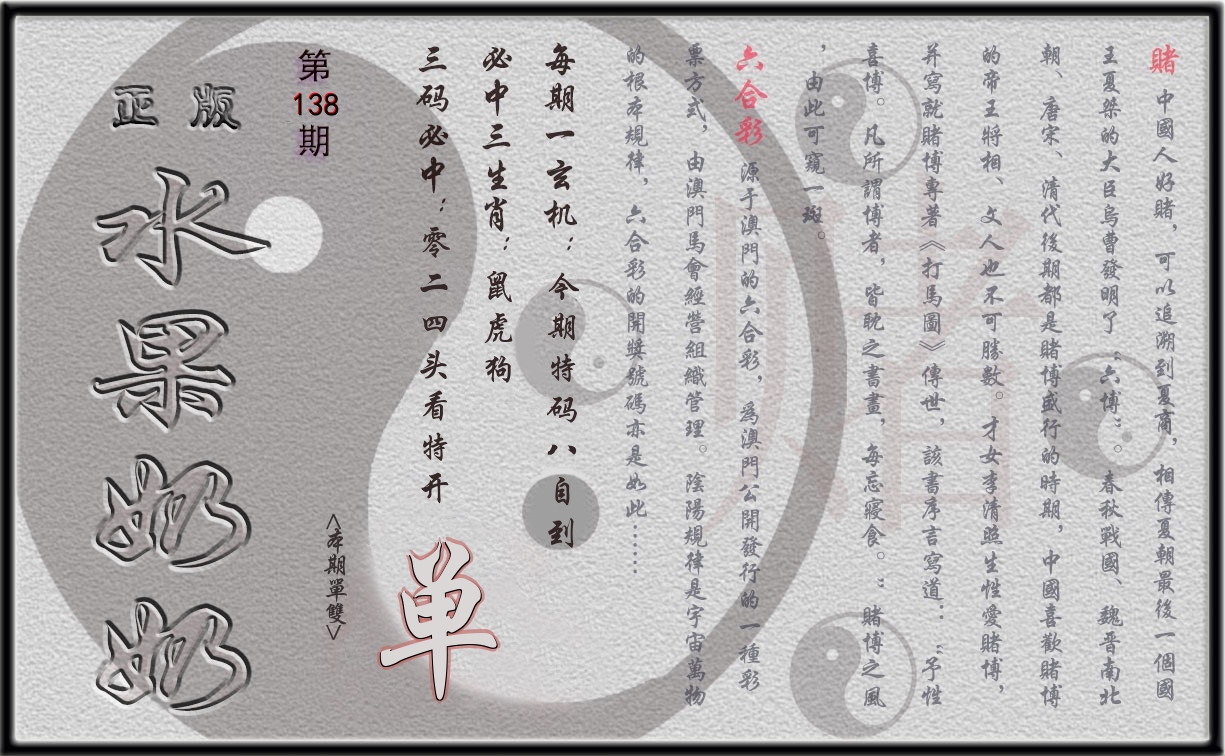 賭 中國人好賭，可以追溯到夏商，相傳夏朝最後一個國
王夏桀的大臣烏曹發明了“六博”。春秋戰國、魏晋南北
朝、唐宋、清代後期都是賭博盛行的時期，中國喜歡賭博
的帝王將相、文人也不可勝數。才女李清照生性愛賭博，
并寫就賭博專著《打馬圖》傳世，該書序言寫道：“予性
喜博。凡所謂博者，皆耽之書畫，每忘寢食。”賭博之風
，由此可窺一斑。
六合彩 源于澳門的六合彩，爲澳門公開發行的一種彩
票方式，由澳門馬會經營組織管理。陰陽規律是宇宙萬物
的根本規律，六合彩的開獎號碼亦是如此……
每期一玄机：今期特码八自到
必中三生肖：鼠虎狗
三码必中：零二四头看特开
单
<本期單雙>
第
138
期
正版
水果奶奶
賭